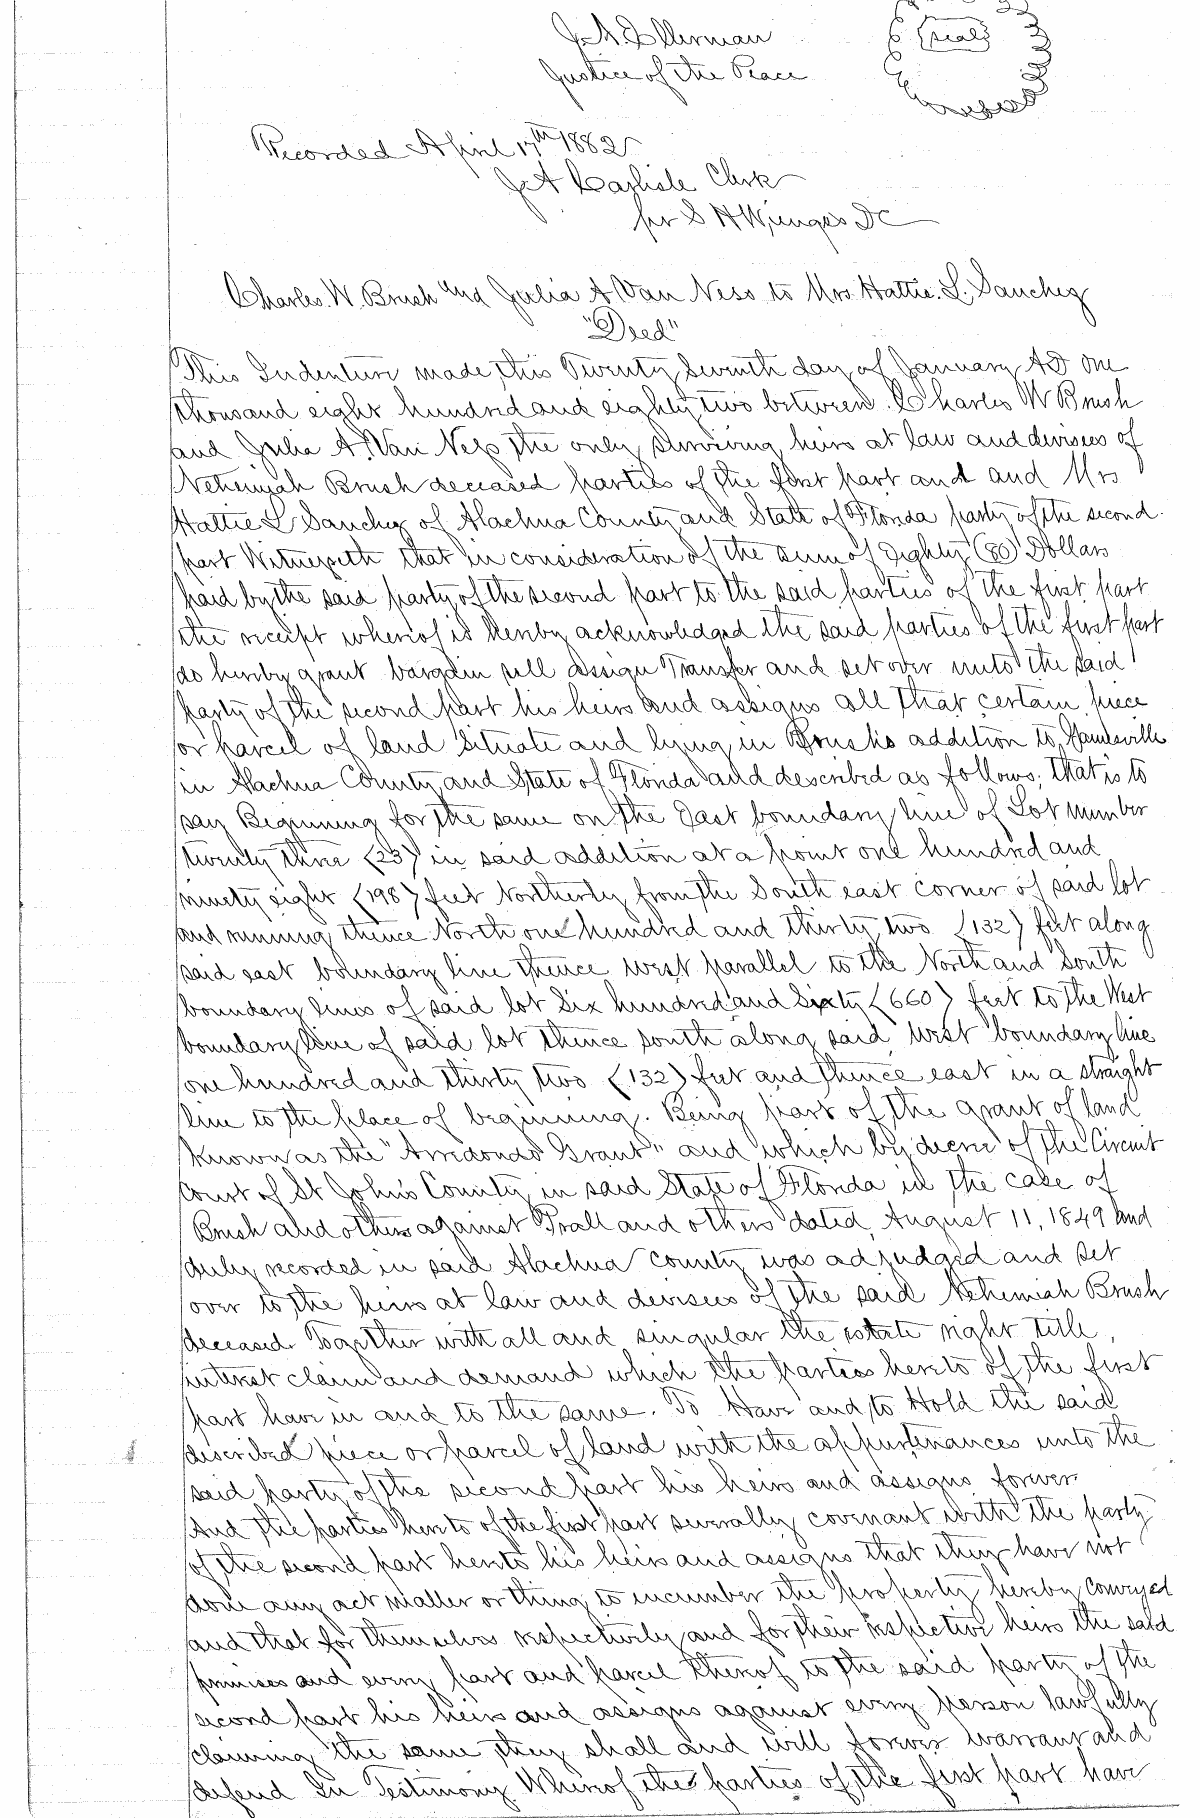 J. A. Ellerman
(seal)
Justice of the Peace
Recorded April 17th 1882
J A Carlisle Clerk
per S H Wienges DC
Charles W. Brush and Julia A Van Ness to Mrs Hattie. L. Sanchez
"Deed"
This Indenture made this Twenty Seventh day of January AD one
thousand eight hundred and eighty two between Charles W Brush
and Julia A. Van Ness the only surviving heirs at law and devisees of
Nehemiah Brush deceased parties of the first part and and Mrs
Hattie L Sanchez of Alachua County and State of Florida party of the second
part Witnesseth that in consideration of the sum of Eighty (80) Dollars
paid by the said party of the second part to the said parties of the first part
the receipt whereof is hereby acknowledged the said parties of the first part
do hereby grant bargain sell assign Transfer and set over unto the said
party of the second part his heirs and assigns all that certain piece
or parcel of land situate and lying in Brush's addition to Gainesville
in Alachua County and State of Florida and described as follows; that is to
say Beginning for the same on the East boundary line of Lot number
twenty three (23) in said addition at a point one hundred and
ninety eight (198) feet Northerly from the South east corner of said lot
and running thence North one hundred and thirty two (132) feet along
said east boundary line thence west parallel to the North and South
boundary lines of said lot Six hundred and Sixty (660) feet to the West
boundary line of said lot thence south along said west boundary line
one hundred and thirty two (132) feet and thence east in a straight
line to the place of beginning. Being part of the grant of land
known as the "Arredondo Grant" and which by decree of the Circuit
Court of St John's County in said State of Florida in the case of
Brush and others against Trall and others dated August 11, 1849 and
duly recorded in said Alachua County was adjudged and set
over to the heirs at law and devisees of the said Nehemiah Brush
deceased. Together with all and singular the estate right title,
interest claim and demand which the parties hereto of the first
part have in and to the same. To Have and to Hold the said
described piece or parcel of land with the appurtenances unto the
said party of the second part his heirs and assigns forever
And the parties hereto of the first part severally covenant with the party
of the second part hereto his heirs and assigns that they have not
done any act matter or thing to incumber the property hereby conveyed
and that for themselves respectively and for their respective heirs the said
premises and every part and parcel thereof to the said party of the
second part his heirs and assigns against every person lawfully
claiming the same they shall and will forever warrant and
defend In Testimony Whereof the parties of the first part have